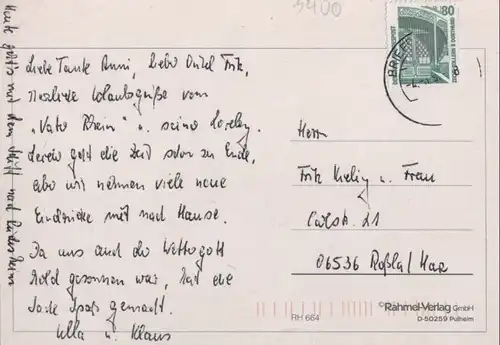 5400
80
DEUTSCHE BUNDESPOST
BRIEF
Heute geht's mit dem Schiff nach Rüdesheim
Liebe Tante Anni, lieber Onkel Fritz,
Herzliche Urlaubsgrüße vom
„Vater Rhein" u. seiner Loreley.
Leider geht die Zeit schon zu Ende,
aber wir nehmen viele neue
Eindrücke mit nach Hause.
Da uns auch der Wettergott
hold gesonnen war, hat die
Sache Spaß gemacht.
Ulla u. Klaus
Herr
Fritz u. Frau
21
06536 Roßla/Harz
© Rahmel-Verlag GmbH
D-50259 Pulheim
RH 664